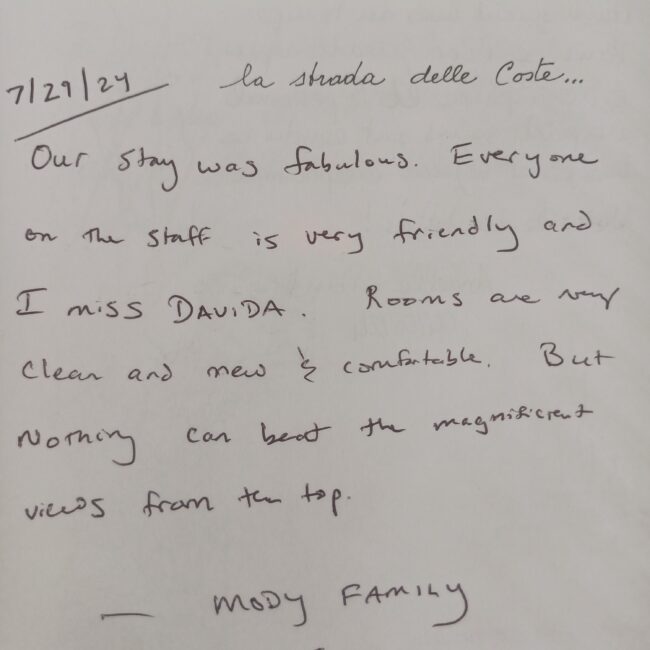 7/29/24 la strada delle Coste...
Our stay was fabulous. Everyone
on the staff is very friendly and
I miss DAVIDA. Rooms are very
clean and new & comfortable. But
Nothing can beat the magnificient
views from the top.
— MODY FAMILY